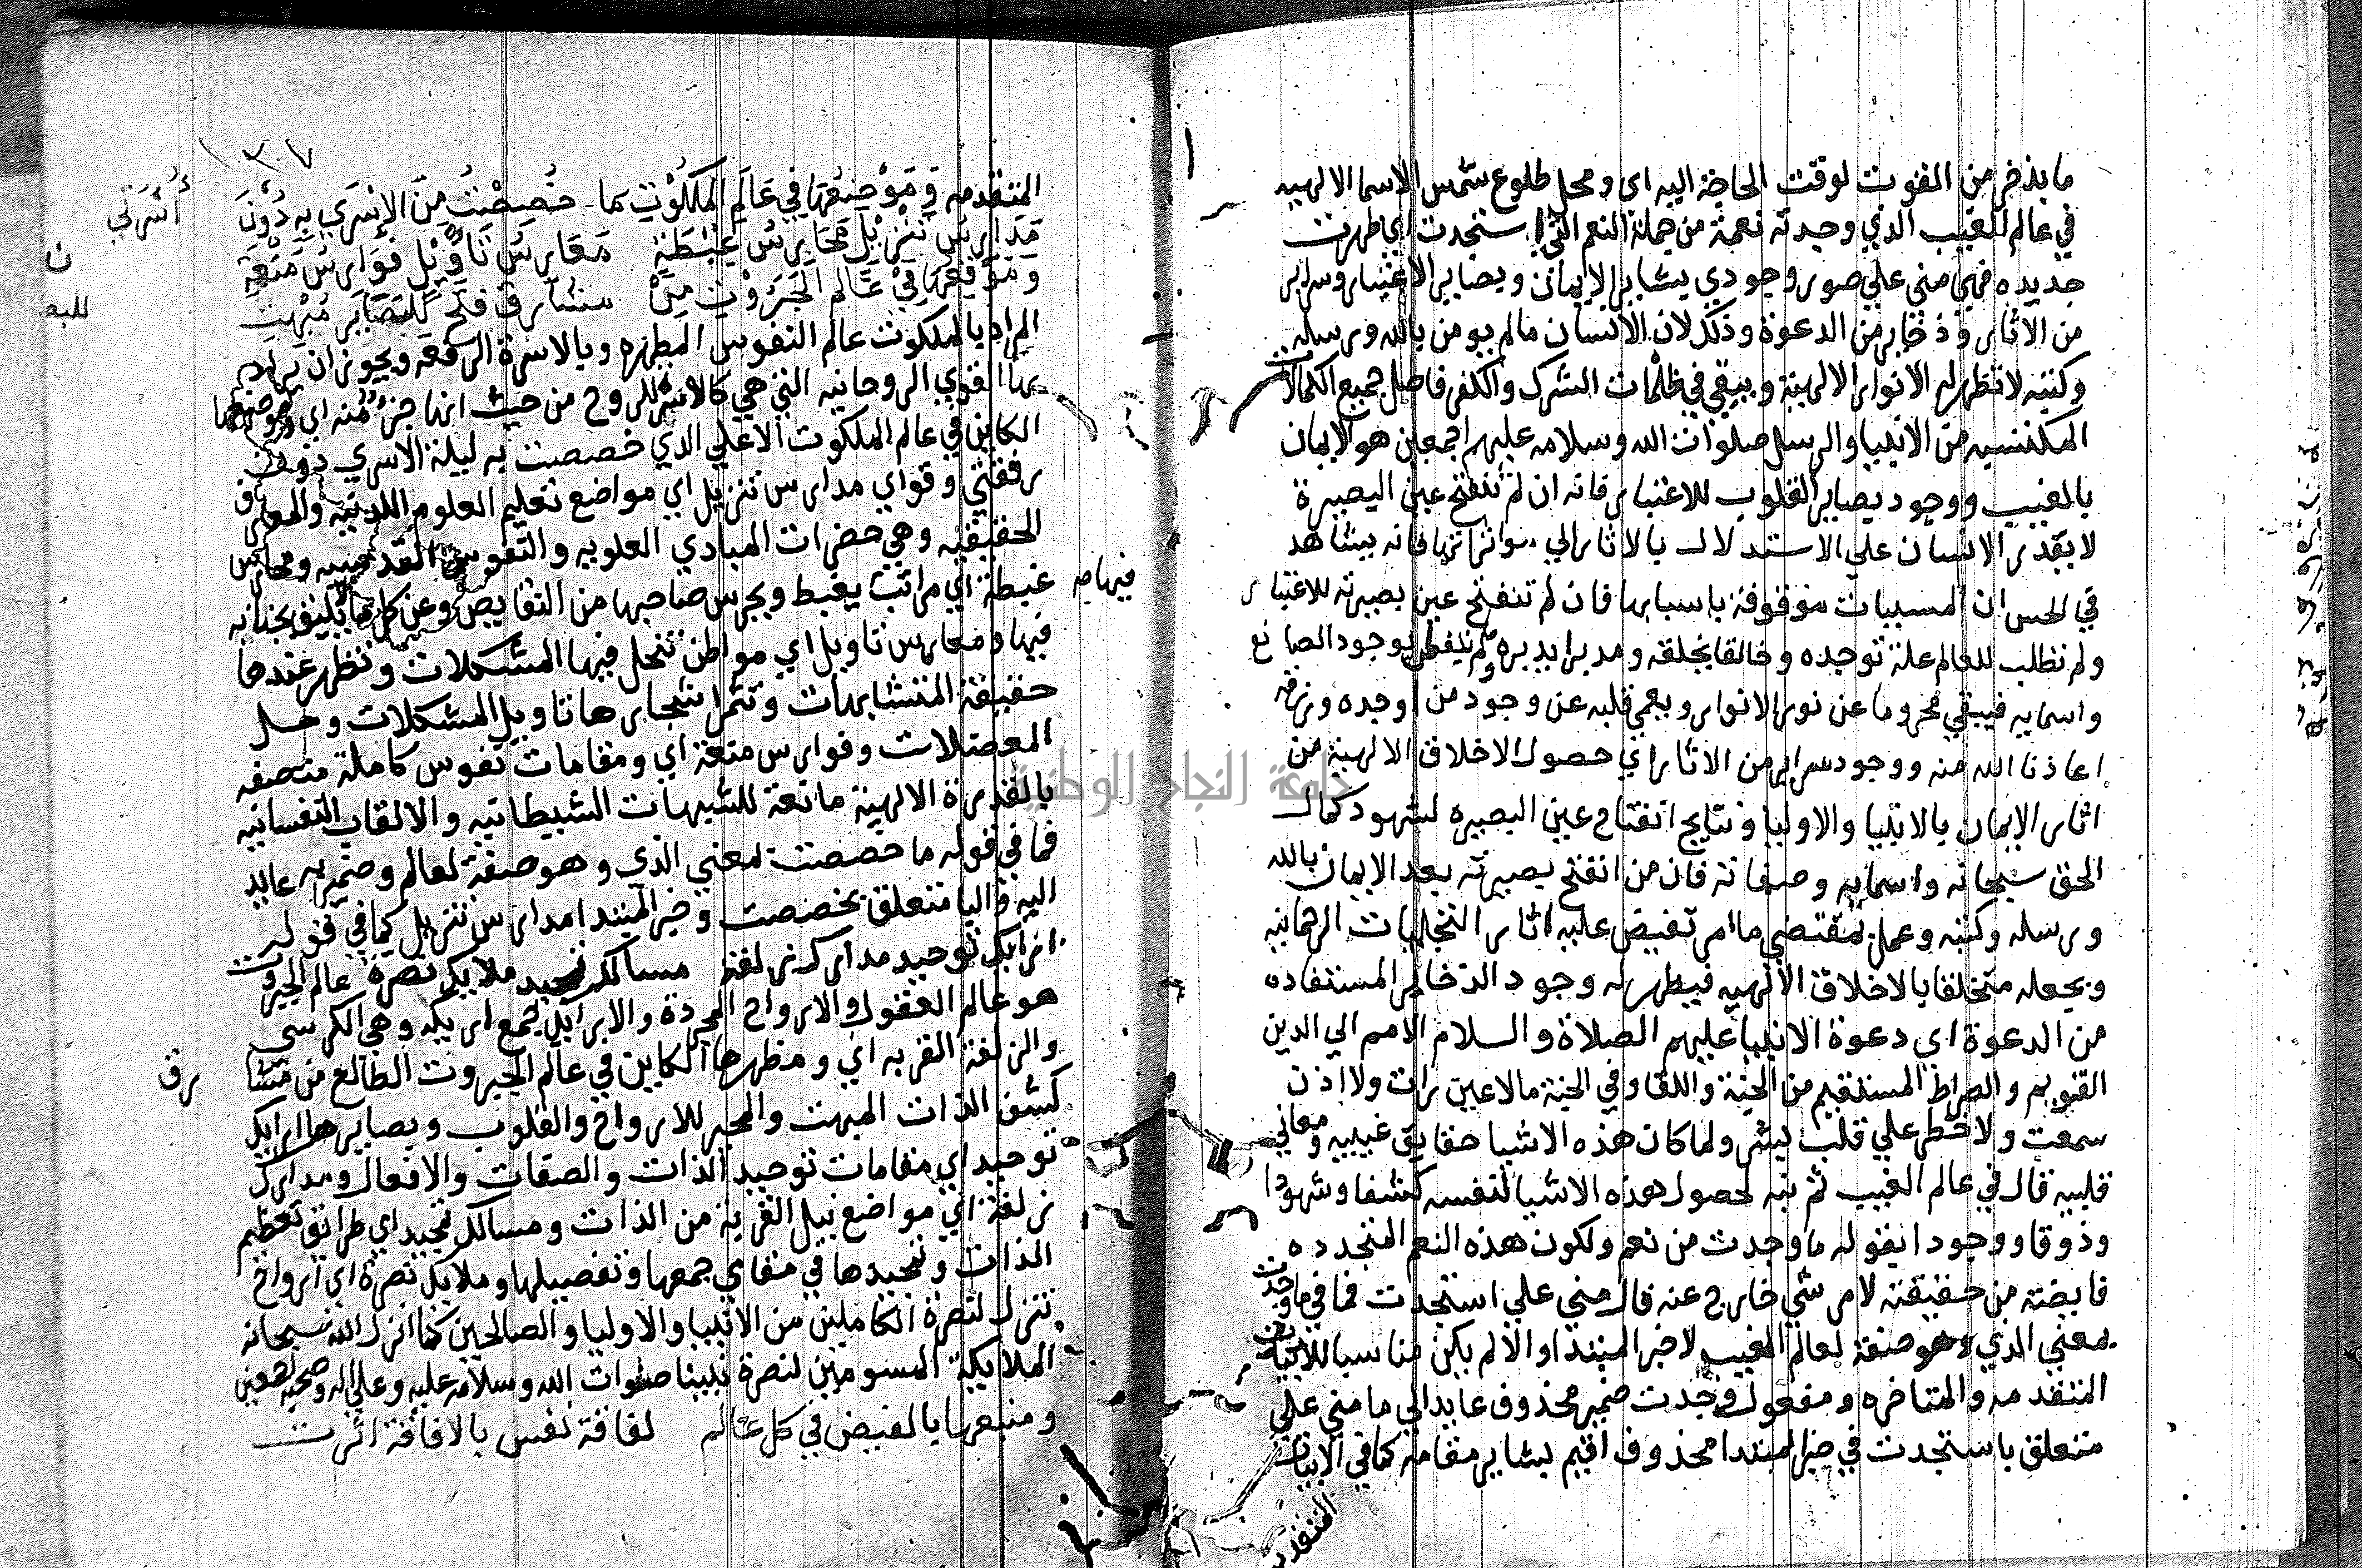 ما يذخر من القوت لوقت الحاجة اليه اى ومحل طلوع شمس الاسما الالهيه
في عالم الغيب الذي وجدته نعمة من جملة النعم التي استجدت اي ظهرت
جديده فهي مني علي صور وجودي بشاير الايمان وبصاير الاعتبار وسراير
من الاثار وذخاير من الدعوة وذلك لان الانسان مالم يومن بالله ورسله
وكتبه لا تظهر له الانوار الالهية ويبقي في ظلمات الشرك والكفر فاصل جميع الكمالات
المكتسبه من الانبيا والرسل صلوات الله وسلامه عليهم اجمعين هو الايمان
بالغيب ووجود بصاير القلوب للاعتبار فانه ان لم تنفتح عين البصيرة
لا يقدر الانسان علي الاستدلال بالاثار الي موثراتها فانه يشاهد
في الحس ان المسببات موقوفة باسبابها فان لم تنفتح عين بصيرته للاعتبار
ولم تطلب للعالم علة توجده وخالقا يخلقه ومدبرا يدبره لم يتفطن بوجود الصانع
واسمايه فيبقي محروما عن نور الانوار ويعمي قلبه عن وجود من اوجده ورزقه
اعاذنا الله منه ووجود سراير من الاثار اي حصول الاخلاق الالهية من
اثار الايمان بالانبيا والاوليا ونتايج انفتاح عين البصيره لشهود كمال
الحق سبحانه واسمايه وصفاته فان من انفتح بصيرته بعد الايمان بالله
ورسله وكتبه وعمل بمقتضي ما امر تفيض عليه اثار التجليات الرحمانيه
ويجعله متخلقا بالاخلاق الالهيه فيظهر له وجود الذخاير المستفاده
من الدعوة اي دعوة الانبيا عليهم الصلاة والسلام الامم الي الدين
القويم والصراط المستقيم من الجنة واللقا وفي الجنة مالا عين رات ولا اذن
سمعت ولا خطر علي قلب بشر ولما كان هذه الاشيا حقايق غيبيه ومعاني
قلبيه قال في عالم الغيب ثم نبه لحصول هذه الاشيا لنفسه كشفا وشهودا
وذوقا ووجودا بقوله ما وجدت من نعم ولكون هذه النعم المتجدده
فايضة من حقيقته لا من شي خارج عنه قال مني علي استجدت فما في ما وجدت
بمعني الذي وهو صفة لعالم الغيب لا خبر المبتدا والا لم يكن مناسبا للابيات
المتقدمه والمتاخره ومفعول وجدت ضمير محذوف عايد الي ما مني علي
متعلق باستجدت في خبر المبتدا محذوف اقيم بشاير مقامه كما في الابيات
المتقدمه
١٣٧
المتقدمه وَمَوْضِعُهَا فِي عَالَمِ المَلَكُوتِ مَا خُصِصْتُ مِنَ الإِسْرَي بِهِ دُونَ
أُسْرَتي
مَدَارِسُ تَنْزِيْلٍ مَحَارِسُ غِبْطَةٍ مَغَارِسُ تَاوِيْلٍ فَوَارِسُ مَنْعَةِ
وَمَوْقِعُهَا فِيْ عَالَمِ الجَبَرُوْتِ مِنْ مَشَارِقِ فَتْحٍ لِلْبَصَايِرِ مُبْهِتِ
المراد بالملكوت عالم النفوس المطهره وبالاسرة الرفقة ويجوز ان يراد
بها القوي الروحانيه التي هي كالاسرة للروح من حيث انها جزء منه اي وموضعها
الكاين في عالم الملكوت الاعلي الذي خصصت به ليلة الاسري دون
رفقتي وقواي مدارس تنزيل اي مواضع تعليم العلوم اللدنيه والمعارف
الحقيقيه وهي حضرات المبادي العلويه والنفوس القدسيه ومحارس
غبطة اي مراتب يغبط ويحرس صاحبها من النقايص وعن كل ما يليق بجنابه
فيها صح
فيها ومغارس تاويل اي مواطن تنحل فيها المشكلات وتظهر عندها
حقيقة المتشابهات وتثمر اشجارها تاويل المشكلات وحل
المعضلات وفوارس منعة اي ومقامات نفوس كاملة متصفه
بالقدرة الالهية مانعة للشبهات الشيطانيه والالقاب النفسانيه
فما في قوله ما خصصت بمعني الذي وهو صفة لعالم وضمير به عايد
اليه والبا متعلق بخصصت وخبر المبتدا مدارس تنزيل كما في قوله
ارايك توحيد مدارك زلفة مسالك تمجيد ملايك نصرة عالم الجبروت
هو عالم العقول والارواح المجردة والارايك جمع اريكه وهي الكرسي
والزلفة القربه اي ومظهرها الكاين في عالم الجبروت الطالع من مشا
رق
كشف الذات المبهت والمحير للارواح والقلوب وبصايرها ارايك
توحيد اي مقامات توحيد الذات والصفات والافعال ومدارك
زلفة اي مواضع نيل القربة من الذات ومسالك تمجيد اي طرائق تعظيم
الذات وتمجيدها في مقامي جمعها وتفصيلها وملايك نصرة اي ارواح
تتنزل لنصرة الكاملين من الانبيا والاوليا والصالحين كما انزل الله سبحانه
الملايكة المسومين لنصرة نبينا صلوات الله وسلامه عليه وعلي اله وصحبه اجمعين
ومنبعها بالفيض في كل عالم لفاقة نفس بالافاقة اثرت